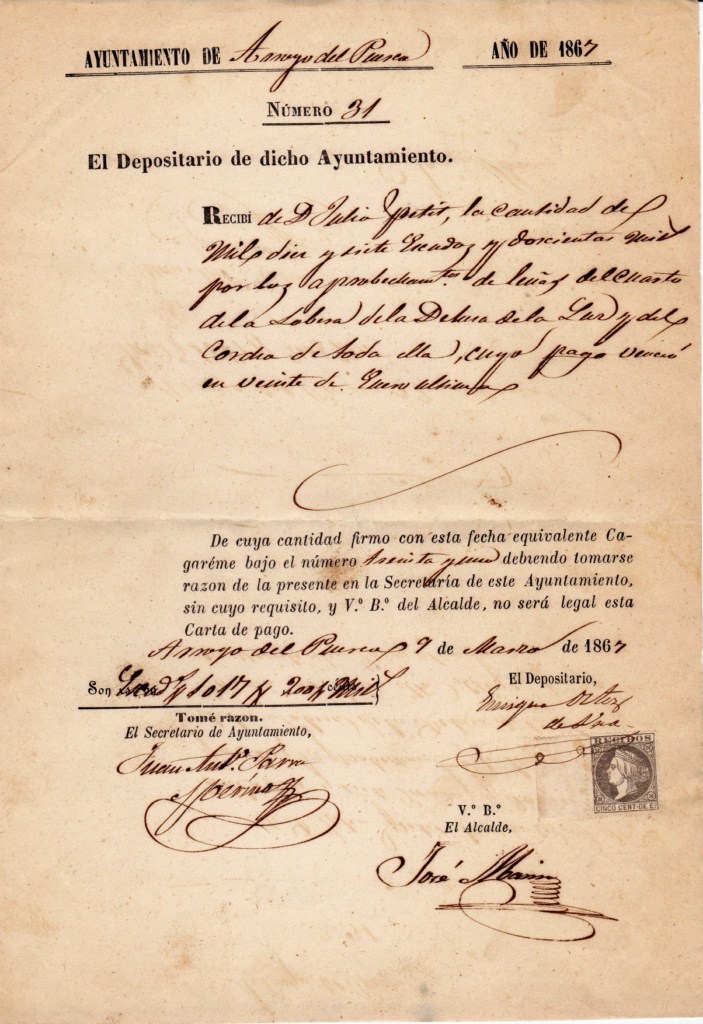 AYUNTAMIENTO DE Arroyo del Puerco AÑO DE 1867
NÚMERO 31
El Depositario de dicho Ayuntamiento.
RECIBÍ de D. Julio Petit, la cantidad de
Mil diez y siete Escudos y doscientas mil
por los aprobechamtos. de leñas del cuarto
de la Lobera de la Dehesa de la Luz y del
de toda ella, cuyo pago venció
en veinte de Enero
De cuya cantidad firmo con esta fecha equivalente Ca-
garéme bajo el número treinta y uno debiendo tomarse
razon de la presente en la Secretaría de este Ayuntamiento,
sin cuyo requisito, y V.º B.º del Alcalde, no será legal esta
Carta de pago.
Arroyo del Puerco 7 de Marzo de 1867
Son 1017
El Depositario,
Enrique Ortiz
de
Tomé razon.
El Secretario de Ayuntamiento,
Juan Antº.
RECIBOS
CINCO CENT. DE E.
V.º B.º
El Alcalde,
José Marin